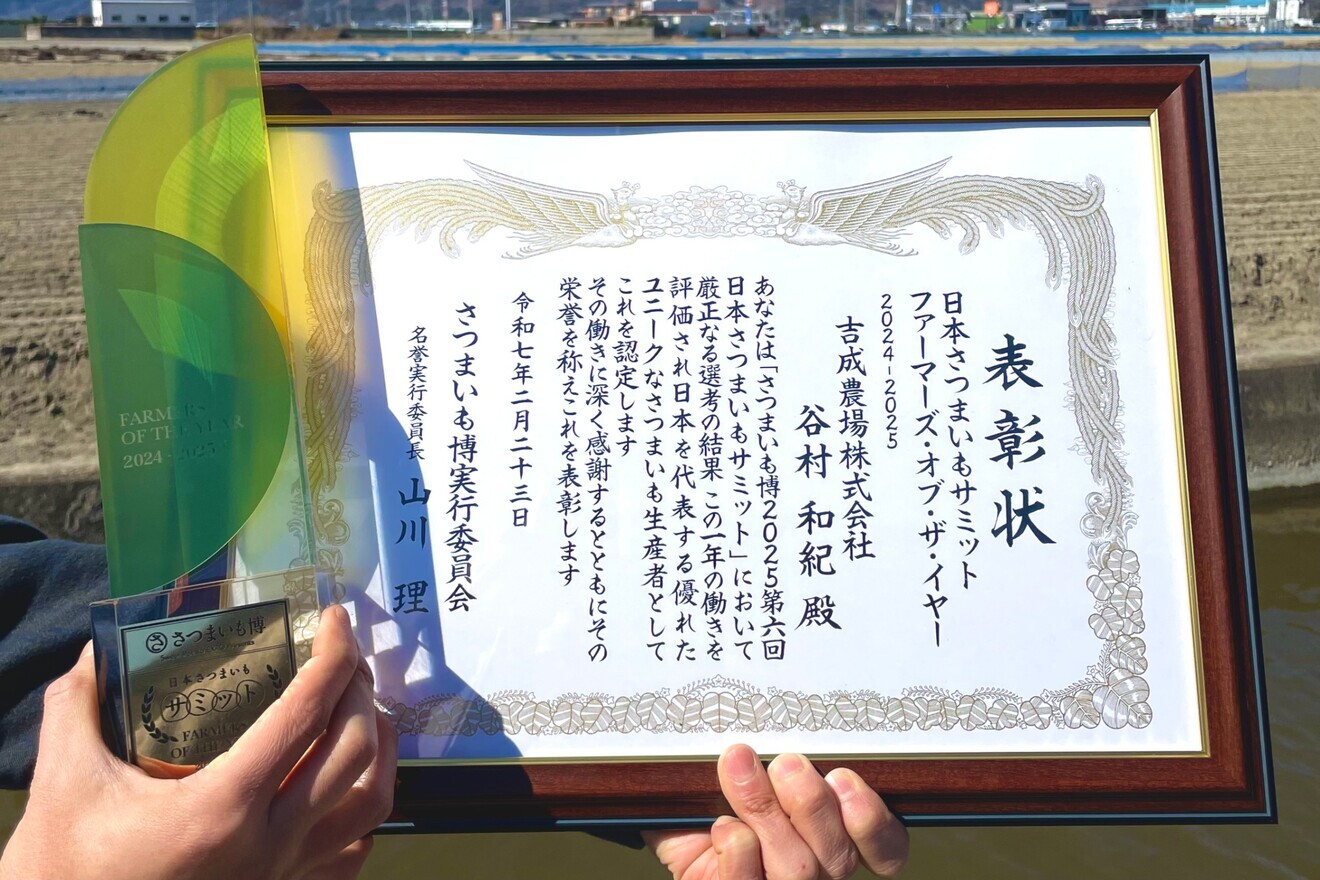 表彰状
日本さつまいもサミット
ファーマーズ・オブ・ザ・イヤー
2024-2025
吉成農場株式会社
谷村 和紀 殿
あなたは「さつまいも博2025第六回
日本さつまいもサミット」において
厳正なる選考の結果この一年の働きを
評価され日本を代表する優れた
ユニークなさつまいも生産者として
これを認定します
その働きに深く感謝するとともにその
栄誉を称えこれを表彰します
令和七年二月二十三日
さつまいも博実行委員会
名誉実行委員長 山川 理
FARMERS
OF THE YEAR
2024-2025
さつまいも博
日本さつまいも
サミット
FARMERS
OF THE